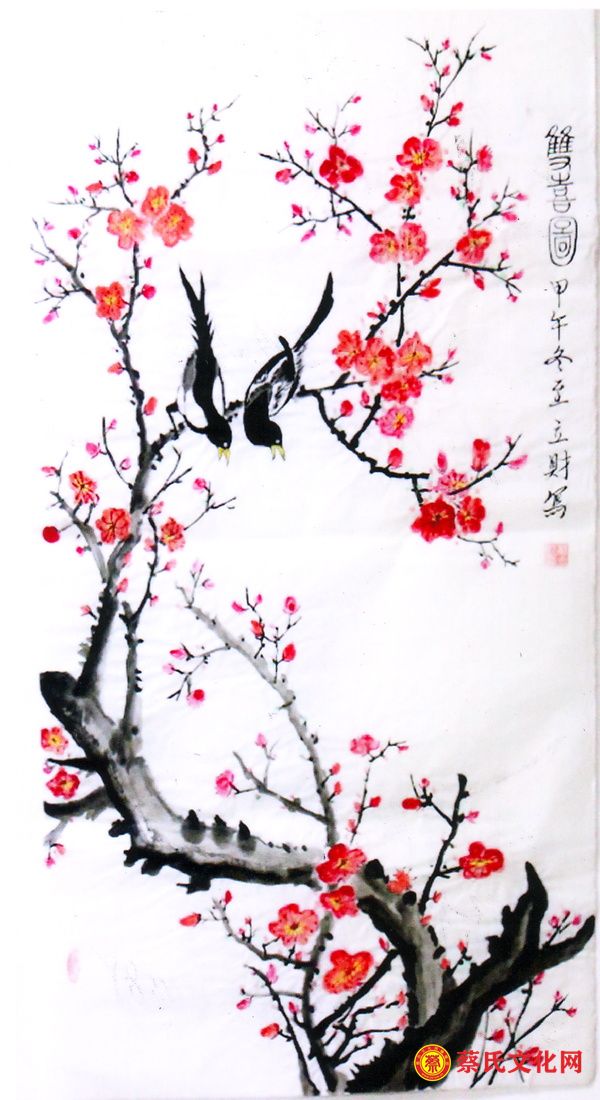 雙喜圖
甲午冬至立財寫
蔡氏文化网